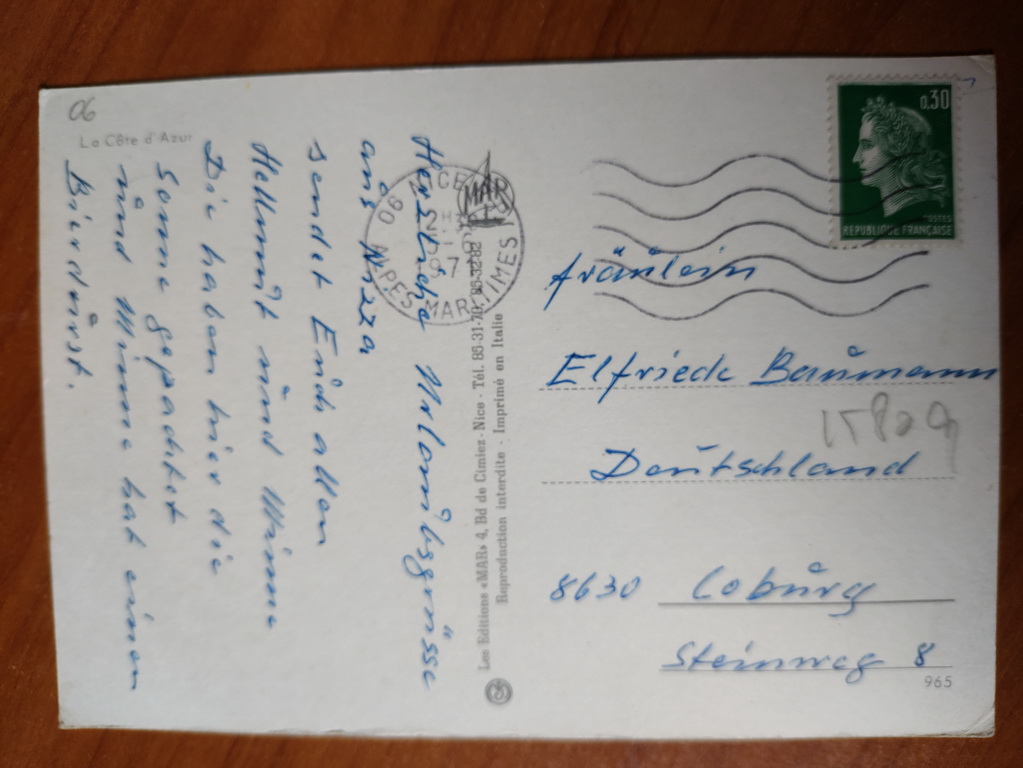 06
La Côte d'Azur
Herzliche Urlaubsgrüsse
aus Nizza
sendet Euch allen
Hellmut und Minne
Die haben hier die
Sonne gepachtet
und Minne hat einen
Bierdurst.
MAR
06 NICE
ALPES MARITIMES
Les Editions «MAR» 4, Bd de Cimiez - Nice - Tél. 85-31-70, 85-32-82
Reproduction interdite - Imprimé en Italie
0,30
POSTES
REPUBLIQUE FRANÇAISE
Fräulein
Elfriede Baumann
Deutschland
8630 Coburg
Steinweg 8
965